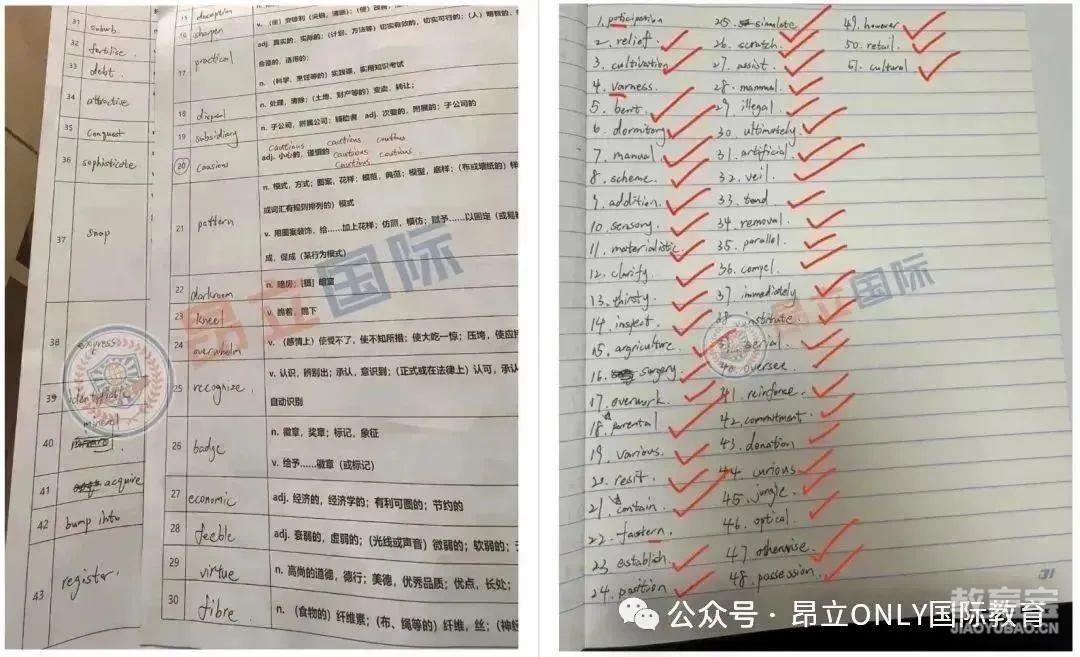 31 suburb.
32 fertilise.
33 debt.
34 attractive
35 Conquest
36 sophisticate
37 snap
38 express
39 identifiable
mineral
40
41 acquire
42 bump into
43 register.
15 deception
16 sharpen
17 practical
adj. 真实的，实际的；（计划、方法等）切实有效的，切实可行的；
合适的，适用的；
n. （科学、烹饪等的）实践课，实用知识考试
18 disposal n. 处理，清除；（土地、财产等的）变卖，转让；
19 subsidiary n. 子公司，附属公司；辅助者 adj. 次要的，附属的；子公司的
cautious cautious cautious
20 causious adj. 小心的，谨慎的 cautious cautious
cautious
21 pattern
n. 模式，方式；图案，花样；模范，典范；模型，底样；（布或墙纸的）样
或词汇有规则排列的）模式
v. 用图案装饰，给……加上花样；仿照，模仿；赋予……以固定（或易
成，促成（某行为模式）
22 darkroom n. 暗房；[摄] 暗室
23 kneel v. 跪着，跪下
24 overwhelm v. （感情上）使受不了，使不知所措；使大吃一惊；压垮，使应接
25 recognize
v. 认识，辨别出；承认，意识到；（正式或在法律上）认可，承认
自动识别
26 badge
n. 徽章，奖章；标记，象征
v. 给予……徽章（或标记）
27 economic adj. 经济的，经济学的；有利可图的；节约的
28 feeble adj. 衰弱的，虚弱的；（光线或声音）微弱的；软弱的；
29 virtue n. 高尚的道德，德行；美德，优秀品质；优点，长处；
30 fibre n. （食物的）纤维素；（布、绳等的）纤维，丝；（神经
昂立国际
1. poticipanion
2. relief.
3. cultivation
4. varness.
5. berit.
6. dormitory
7. manual.
8. scheme.
9. addition.
10. sensory.
11. materialistic
12. clarify.
13. thirsty.
14. inspect.
15. argriculture.
16. surgery.
17. overwork.
18. parental
19. Various.
20. resit.
21. contain.
22. faustern.
23. establish.
24. position.
25. simulate
26. scratch.
27. assist.
28. mammal.
29. illegal.
30. ultimately.
31. artificial.
32. veil.
33. tend
34. removal.
35. parallel.
36. compel.
37. immediately
38. institute
39. serial.
40. oversee.
41. reinforce.
42. commitment.
43. donation
44. curious
45. jungle.
46. optical.
47. otherwise.
48. possession.
49. however
50. retail.
51. cultural
昂立国际
31
公众号·昂立ONLY国际教育
教育宝
JIAOYUBAO.CN